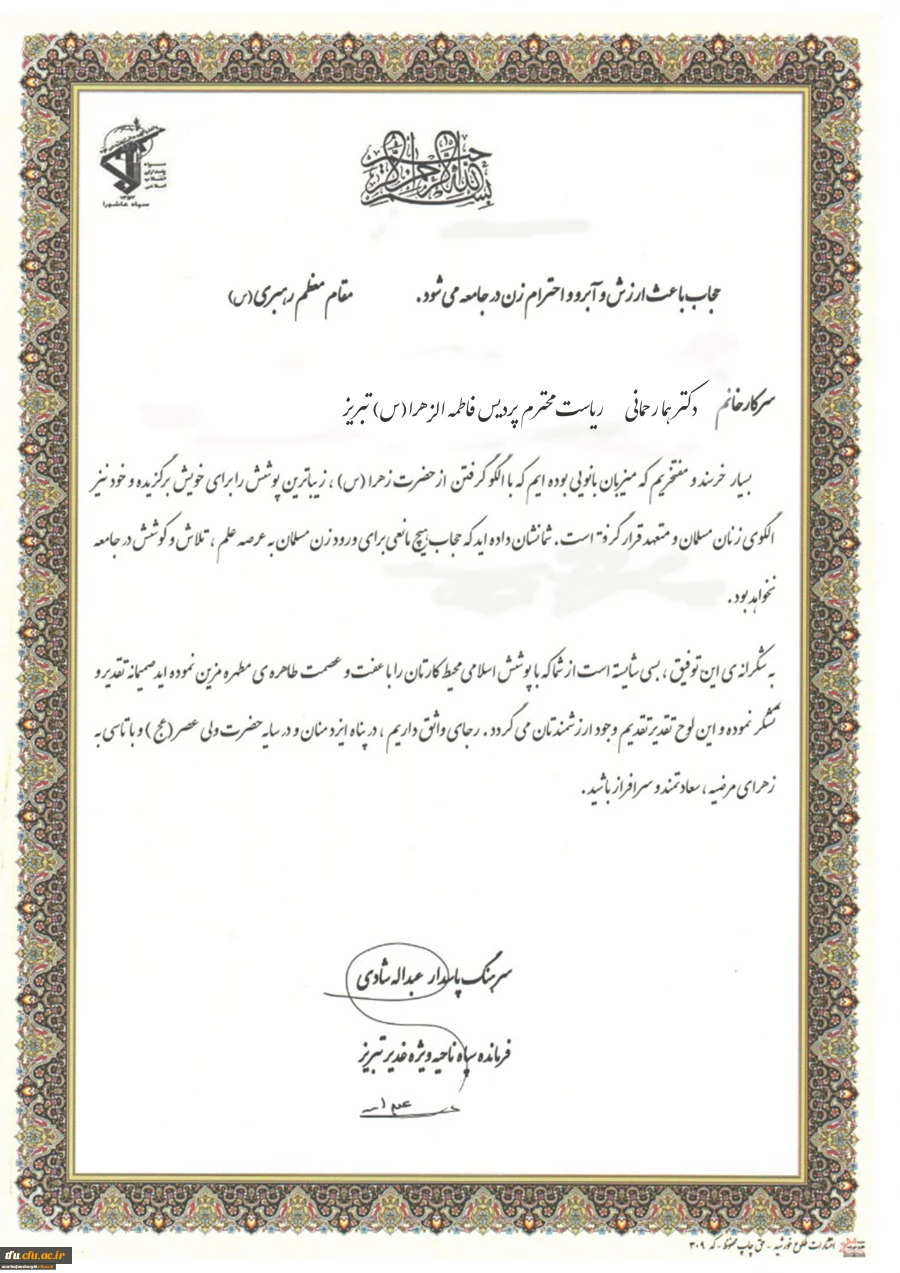 بسم الله الرحمن الرحیم
سپاه
پاسداران
انقلاب
اسلامی
سپاه عاشورا
حجاب باعث ارزش و آبرو و احترام زن در جامعه می شود. مقام معظم رهبری (س)
سرکار خانم دکتر هما رحمانی ریاست محترم پردیس فاطمه الزهرا (س) تبریز
بسیار خرسند و مفتخریم که میزبان بانویی بوده ایم که با الگو گرفتن از حضرت زهرا (س) ، زیباترین پوشش را برای خویش برگزیده و خود نیز
الگوی زنان مسلمان و متعهد قرار گرفته است. شما نشان داده اید که حجاب هیچ مانعی برای ورود زن مسلمان به عرصه علم ، تلاش و کوشش در جامعه
نخواهد بود .
به شکرانه ی این توفیق ، بسی شایسته است از شما که با پوشش اسلامی محیط کارتان را با عفت و عصمت طاهره ی مطهره مزین نموده اید صمیمانه تقدیر و
تشکر نموده و این لوح تقدیر تقدیم وجود ارزشمندتان می گردد . رجای واثق داریم ، در پناه ایزد منان و در سایه حضرت ولی عصر (عج) و با تاسی به
زهرای مرضیه ، سعادتمند و سرافراز باشید .
سرهنگ پاسدار عبداله شادی
فرمانده سپاه ناحیه ویژه غدیر تبریز
انتشارات طلوع خورشید - حق چاپ محفوظ - کد ۳۰۹
tfu.cfu.ac.ir